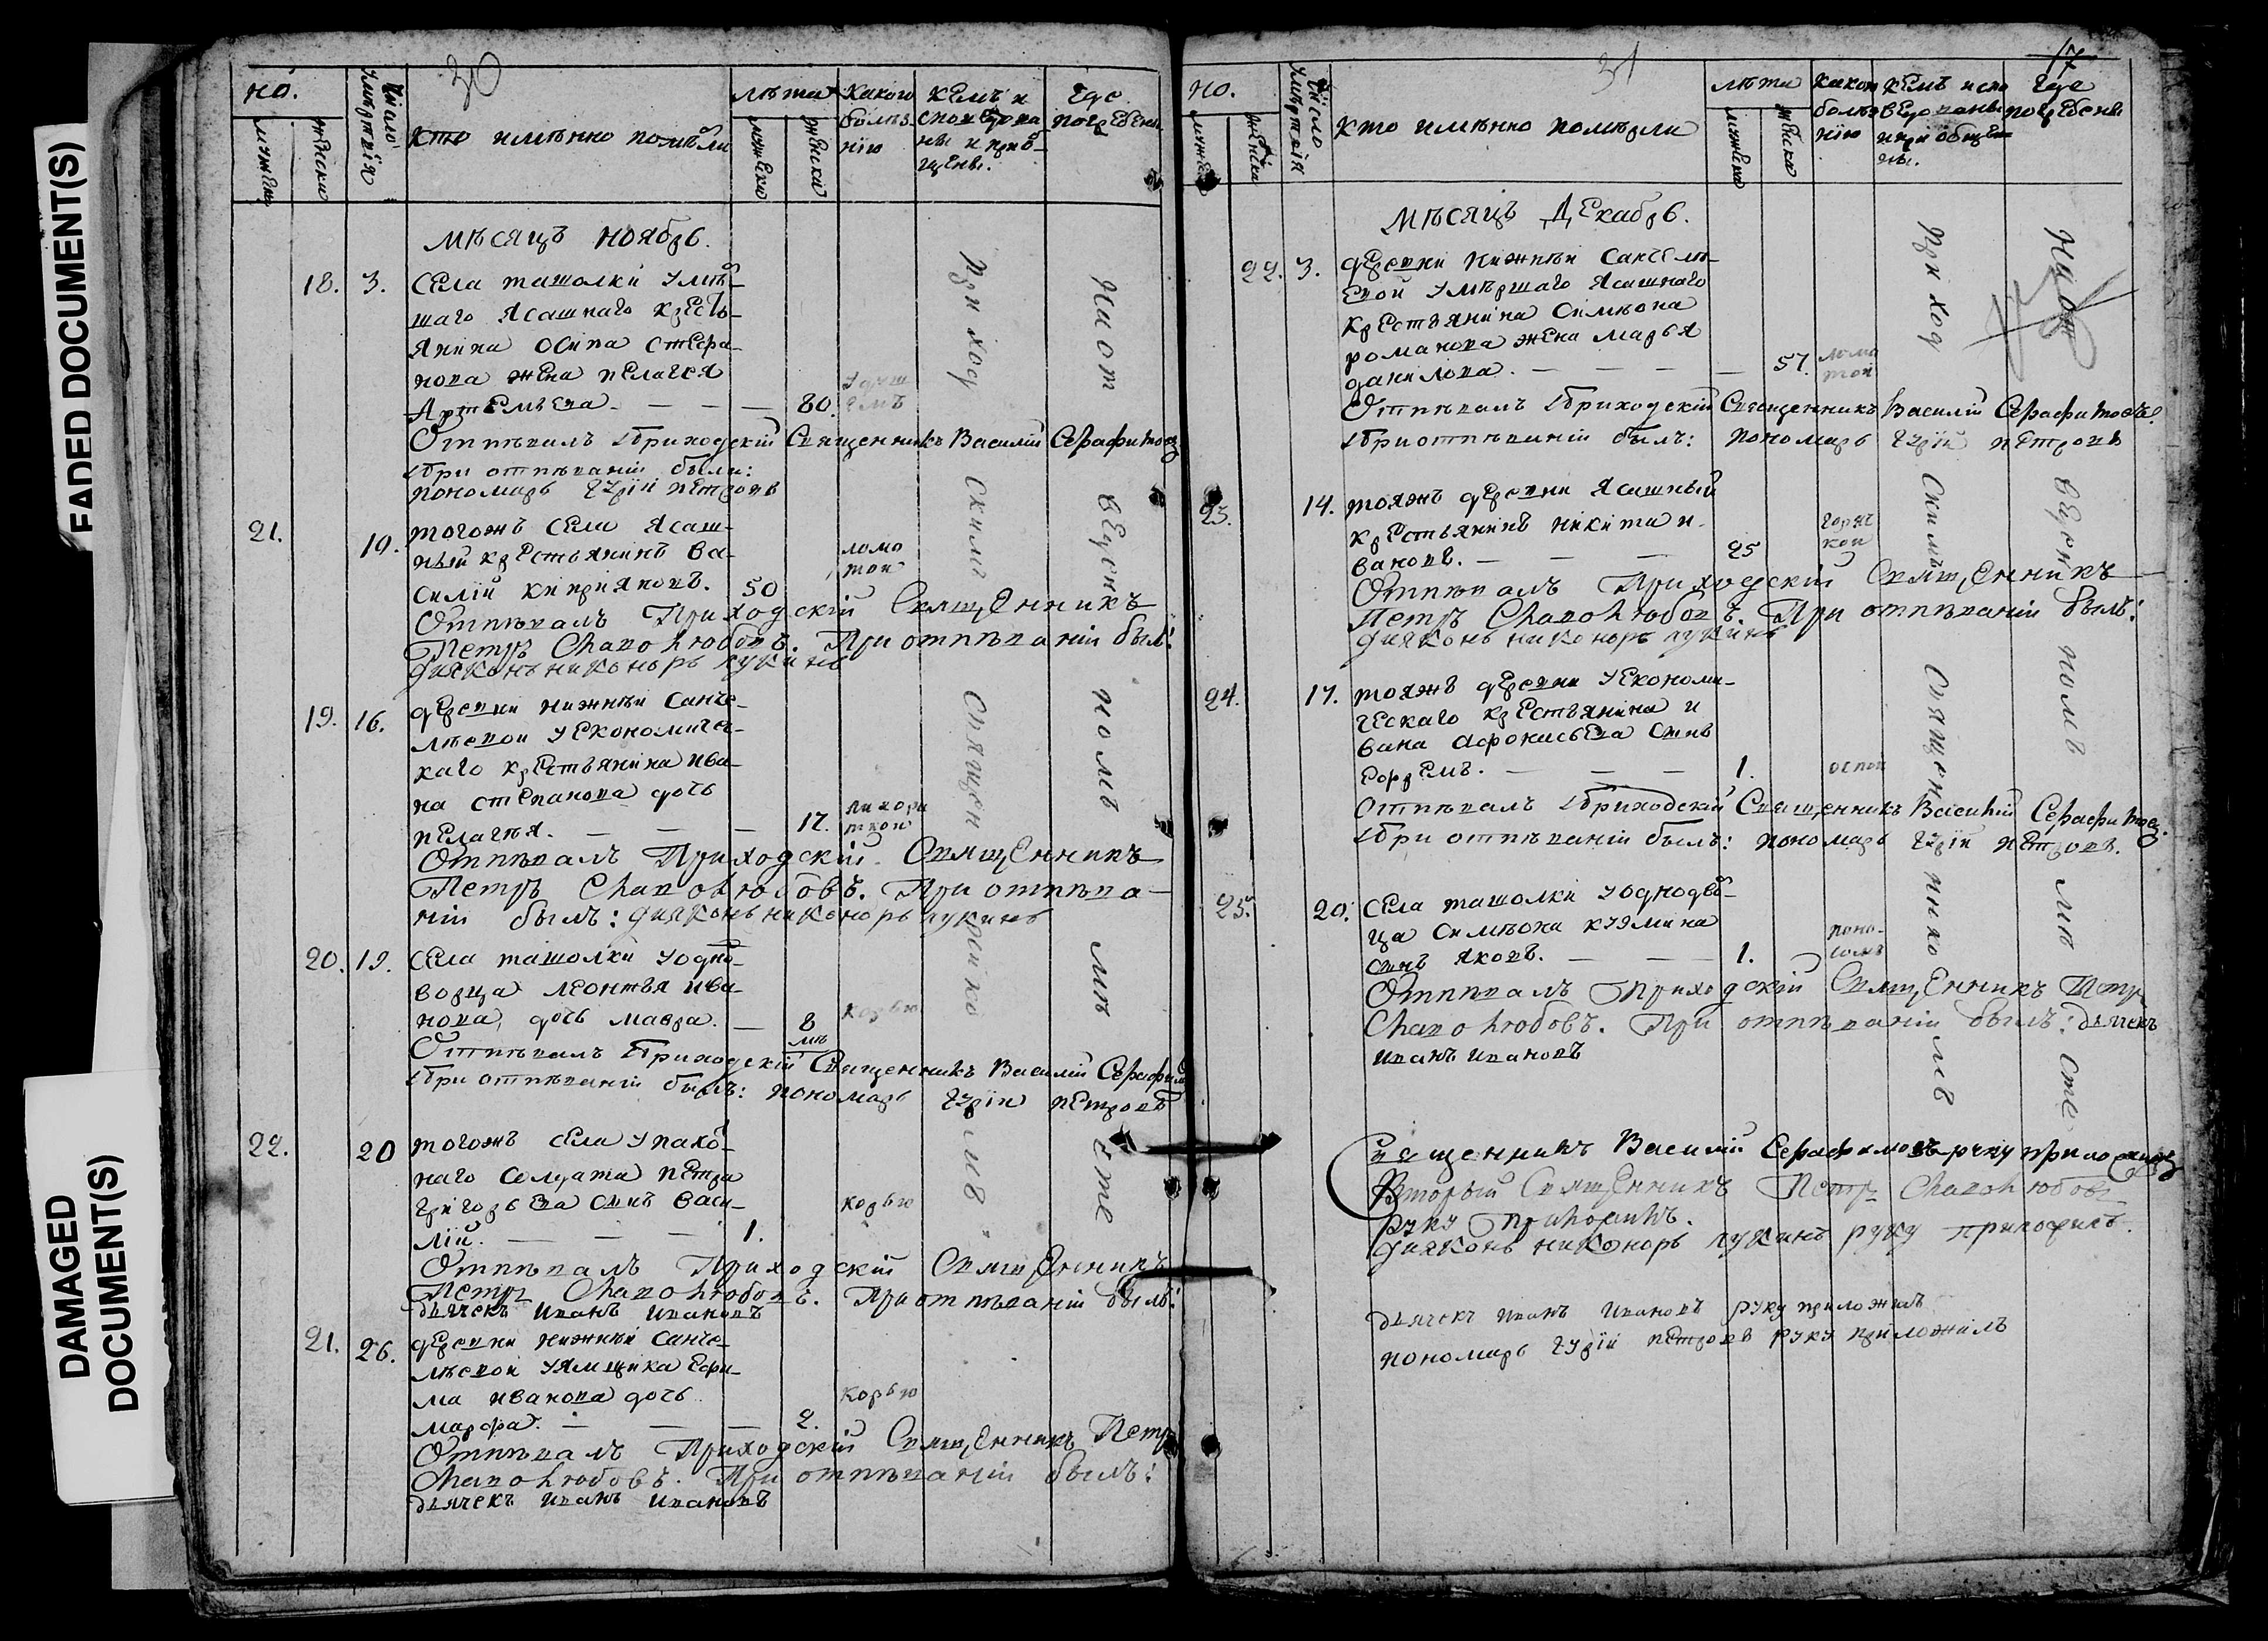 FADED DOCUMENT(S)
DAMAGED
DOCUMENT(S)
30
но.
мужеска
женска
Число умертвія
кто имѣнно помѣрли
лѣта
мужеска
женска
Какою
болѣз
нію
Кемъ и
споведова
ны и приоб
щены.
Где
погребены
мѣсяцъ ноябрь.
18. 3. Села ташолки умѣр
шаго Ясашнаго крестъ
янина Осипа Стефа
нова жена пелагея
Артемьева. 80. удуш
емъ
Отпѣвалъ Приходскій Священникъ Василій Серафимовъ
При отпѣваніи были:
пономарь Гурїй петровъ
21. 19. тогожъ села Ясаш
ный крестьянинъ Ва
силій кипріяновъ. 50 ломо
тою
Отпѣвалъ Приходскій Священникъ
Петръ Славолюбовъ. При отпѣваніи былъ:
діяконъ никоноръ лукинъ
19. 16. деревни нижнѣй Санче
лѣевой у Економичес
каго крестьянина ива
на степанова дочь
пелагѣя. 17. лихора
ткою
Отпѣвалъ Приходскій Священникъ
Петръ Славолюбовъ. При отпѣва
ніи былъ: діяконъ никоноръ лукинъ
20. 19. Села ташолки у однод
ворца леонтья ива
нова, дочь мавра. 8 корью
мѣ
Отпѣвалъ Приходскій Священникъ Василій Серафимовъ
При отпѣваніи былъ: пономарь Гурїй петровъ
22. 20 тогожъ села у пахо
наго солдата петра
григорьева сынъ васи
лій. 1. корью
Отпѣвалъ Приходскій Священникъ
Петръ Славолюбовъ. При отпѣваніи былъ:
дьячекъ иванъ ивановъ
21. 26. деревни нижнѣй санче
лѣевой у ямщика Ефи
ма иванова дочь корью
марфа. 2.
Отпѣвалъ Приходскій Священникъ Петръ
Славолюбовъ. При отпѣваніи былъ:
дьячекъ иванъ ивановъ
Приход скимъ священ нико мъ
На от веден номъ мѣ сте
31
17
но.
мужеска
женска
Число умертвія
кто имѣнно помѣрли
лѣта
мужеска
женска
какою
болѣз
нію
кемъ испо
ведованы
и приобщен
ны.
где
погребены
мѣсяцъ Декабрь.
22. 3. деревни нижнѣй санчелѣ
евой умѣршаго ясашнаго
крестьянина Симѣона
романова жена марья
данилова. 57. ломо
тою
Отпѣвалъ Приходскій Священникъ Василій Серафимовъ.
При отпѣваніи былъ: пономарь Гурїй петровъ
23. 14. тояжъ деревни ясашный
крестьянинъ никита и
вановъ. 25 горяч
кою
Отпѣвалъ Приходскій Священникъ
Петръ Славолюбовъ. При отпѣваніи былъ:
діяконъ никоноръ лукинъ
24. 17. тояжъ деревни у Економи
ческаго крестьянина и
вана афонасьева сынъ
Ефремъ. 1. оспой
Отпѣвалъ Приходскій Священникъ Василій Серафимовъ.
При отпѣваніи былъ: пономарь Гурїй петровъ.
25. 20. Села ташолки у однодво
рца Симѣона кузмина
сынъ яковъ. 1. поно
сомъ
Отпѣвалъ Приходскій Священникъ Петръ
Славолюбовъ. При отпѣваніи былъ: дьячекъ
иванъ ивановъ
Приход скимъ священ нико мъ
На от веден номъ мѣ сте
Священникъ Василій Серафимовъ руку приложилъ
Вторый Священникъ Петръ Славолюбовъ
руку приложилъ.
діяконъ никоноръ лукинъ руку приложилъ.
дьячекъ иванъ ивановъ руку приложилъ
пономарь гурїй петровъ руку приложилъ